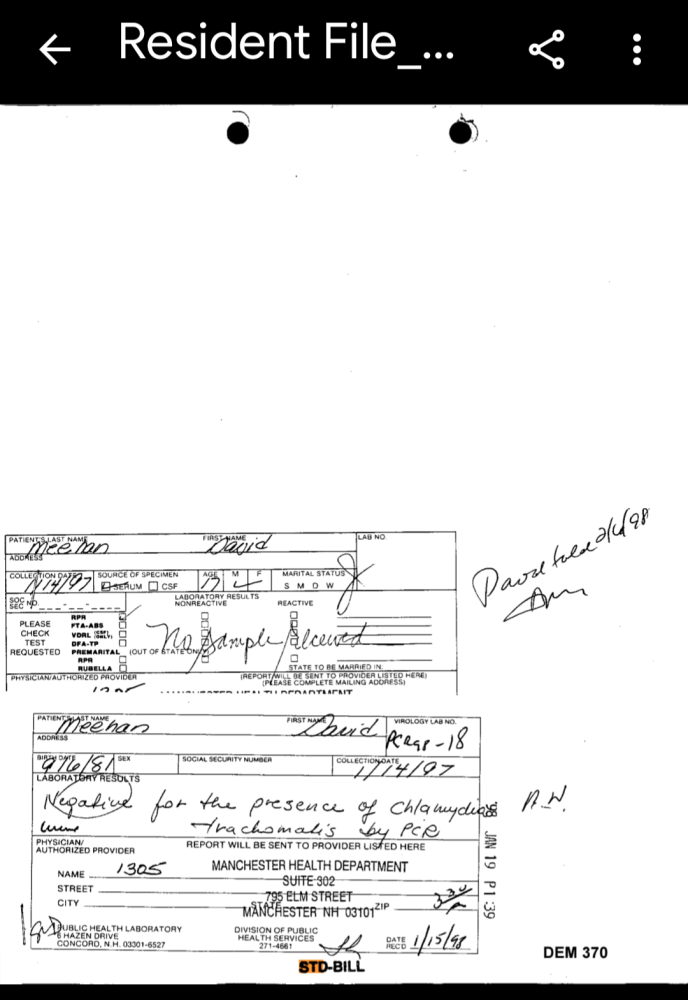 Resident File_...
David told 2/6/98
PATIENT'S LAST NAME FIRST NAME LAB NO.
Meehan David
ADDRESS
COLLECTION DATE SOURCE OF SPECIMEN AGE M F MARITAL STATUS
1/14/97 SERUM CSF 17 S M D W
SOC. SEC. NO. LABORATORY RESULTS
NONREACTIVE REACTIVE
PLEASE CHECK TEST REQUESTED
RPR
FTA-ABS
VDRL (CSF ONLY)
DFA-TP
PREMARITAL (OUT OF STATE ONLY)
RPR
RUBELLA
No Sample Received
STATE TO BE MARRIED IN:
PHYSICIAN/AUTHORIZED PROVIDER (REPORT WILL BE SENT TO PROVIDER LISTED HERE)
(PLEASE COMPLETE MAILING ADDRESS)
MANCHESTER HEALTH DEPARTMENT
PATIENT'S LAST NAME FIRST NAME VIROLOGY LAB NO.
Meehan David PCR98-18
ADDRESS
BIRTH DATE SEX SOCIAL SECURITY NUMBER COLLECTION DATE
9/6/81 1/14/97
LABORATORY RESULTS
Negative for the presence of Chlamydia R.W.
trachomatis by PCR
PHYSICIAN/
AUTHORIZED PROVIDER REPORT WILL BE SENT TO PROVIDER LISTED HERE
NAME 1305 MANCHESTER HEALTH DEPARTMENT
STREET SUITE 302
795 ELM STREET
CITY STATE ZIP
MANCHESTER NH 03101
JAN 19 P1:39
PUBLIC HEALTH LABORATORY
6 HAZEN DRIVE
CONCORD, N.H. 03301-6527
DIVISION OF PUBLIC
HEALTH SERVICES
271-4661
DATE REC'D 1/15/98
STD-BILL
DEM 370